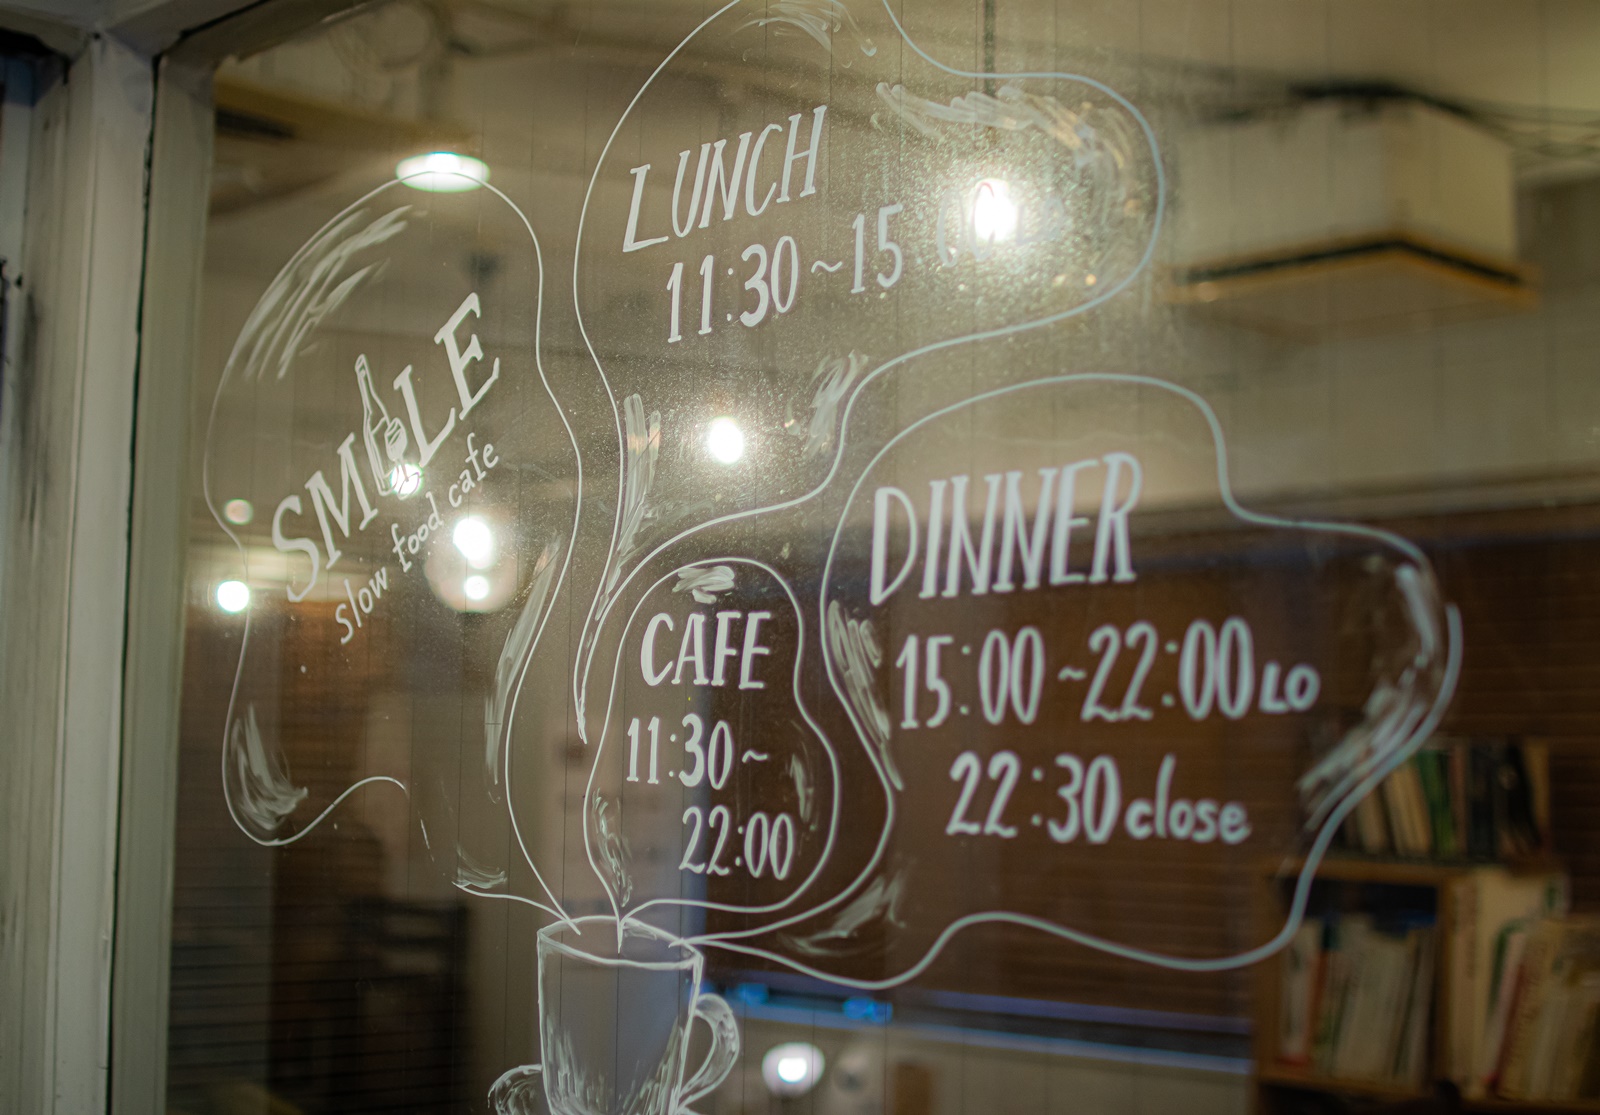 SMILE
slow food cafe
LUNCH
11:30~15:00
CAFE
11:30~
22:00
DINNER
15:00~22:00LO
22:30close